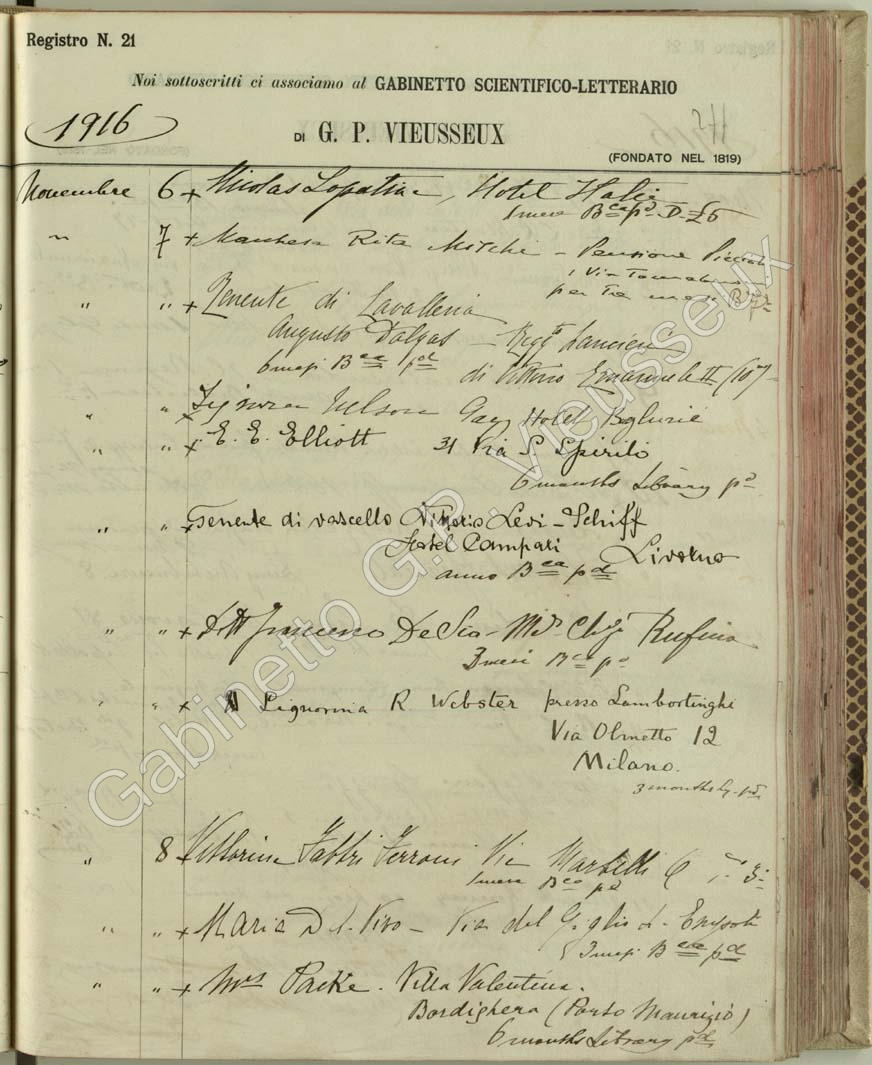 Registro N. 21
Noi sottoscritti ci associamo al GABINETTO SCIENTIFICO-LETTERARIO
1916
DI G. P. VIEUSSEUX
(FONDATO NEL 1819)
Novembre 6 + Nicolas Lopatine, Hotel Italie
1 mese Bca pd D. £5
" 7 + Marchesa Rita - Pensione
1 Via
per tre mesi Bca pd
" " + Tenente di Cavalleria
Augusto Dalgas - Reggto Lancieri
6 mesi Bca pd
di Vittorio Emanuele II (10°)
" " Signora Nelson Gay Hotel
" " + E. E. Elliott 31 Via S. Spirito
6 months Library pd
" " + Tenente di vascello Vittorio Levi-Schiff
Hotel Campari Livorno
anno Bca pd
" " + Dott Francesco De Rufina
3 mesi Bca pd
" " + Signorina R Webster presso Lambertenghi
Via Olmetto 12
Milano.
3 months Ly. pd
" 8 + Vittorina Fabbri Ferroni Via Martelli 6
1 mese Bca pd
" " + Maria Del Vivo - Via del Giglio
3 mesi Bca pd
" " + Mrs Packe. Villa Valentina.
Bordighera (Porto Maurizio)
6 months Library pd
Gabinetto G.P. Vieusseux